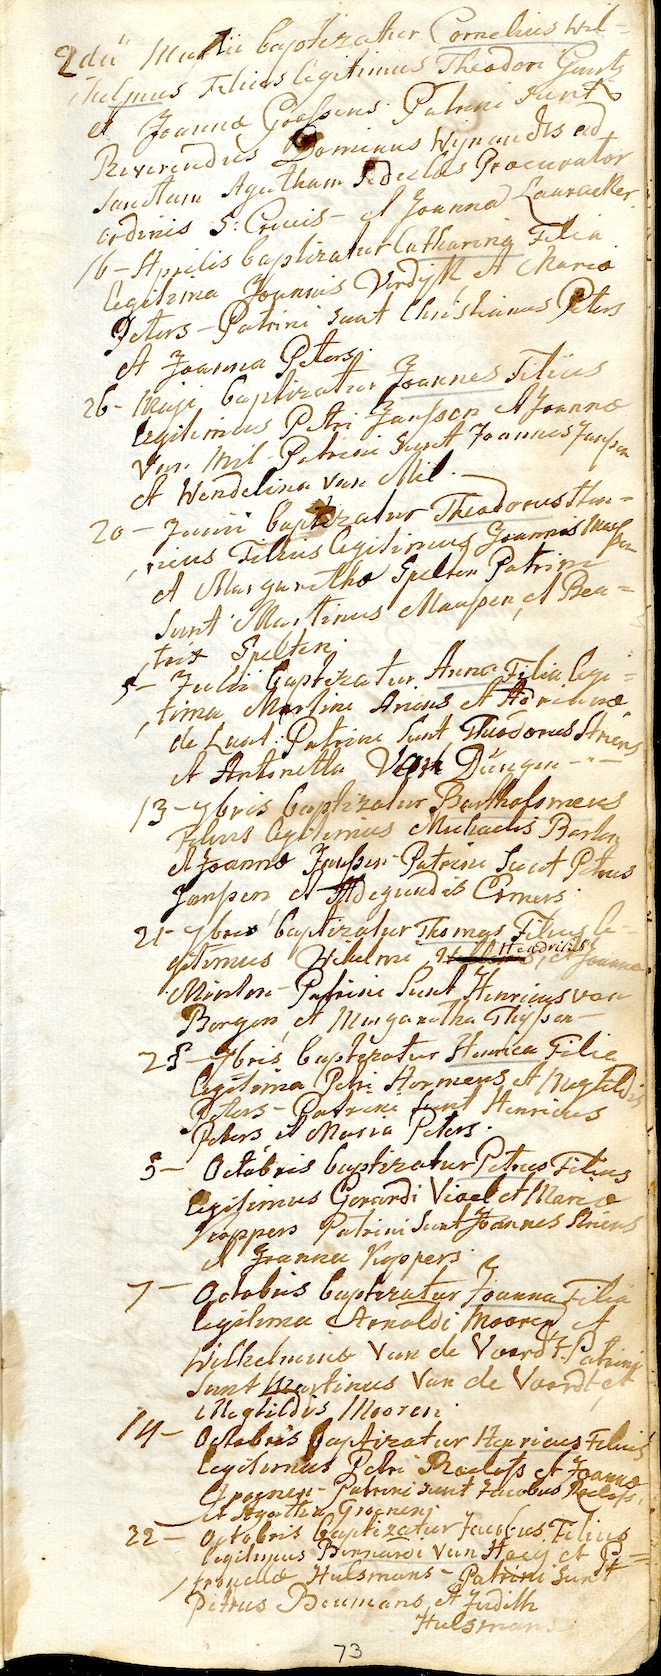 2 dü Martii baptizatur Cornelius Wil-
helmus Filius legitimus Theodori
et Joannæ Goossens. Patrini sunt
Reverendus Dominus Wynandts ad
Sanctam Agatham Procurator
ordinis S: Crucis - et Joanna
16 - Aprilis baptizatur Catharina Filia
legitima Joannis Verdÿk et Maria
Peters - Patrini sunt Christianus Peters
et Joanna Peters.
26 - Maji baptizatur Joannes Filius
legitimus Petri Janssen et Joannæ
Van Mil - Patrini sunt Joannes Janssen
et Wendelina van Mil.
20 - Junii baptizatur Theodorus Hen=
ricus Filius legitimus Joannis
et Margaretha Spelten Patrini
sunt Martinus Maassen, et Bea=
trix Spelten.
5 - Julii baptizatur Anna Filia legi=
tima Martini Ariens et Adrianæ
de Laat: Patrini sunt Theodorus Ariens
et Antonetta Van Düngen - - -
13 - 7bris baptizatur Bartholomeus
Filius legitimus Michaelis
et Joannæ Janssen - Patrini sunt Petrus
Janssen et Aldegundis
21 - 7bris baptizatur Thomas Filius le-
gitimus Wilelmi Hendriks, et Joanna
Patrini sunt Henricus van
Bergen, et Margaretha Thÿssen -
25 - 7bris baptizatur Henrica Filia
legitima Petri Hermens et Megtildis
Peters - Patrini sunt Henricus
Peters et Maria Peters.
3 - Octobris baptizatur Petrus Filius
legitimus Gerardi et Maria
Koppers Patrini sunt Joannes
et Joanna Koppers.
7 - Octobris baptizatur Joanna Filia
legitima Arnoldi Mooren et
Wilhelmina Van de Voordt. Patrini
sunt Martinus Van de Voordt et
Megtildis Mooren.
14 - Octobris baptizatur Henricus Filius
legitimus Petri Roelofs et Joanna
Groenen - Patrini sunt Jacobus Roelofs
et Agatha Groenen.
22 - Octobris baptizatur Jacobus Filius
legitimus Bernardi Van et Pe=
tronella Hulsmans - Patrini sunt
Petrus Beumans et Judith
Hulsmans.
73